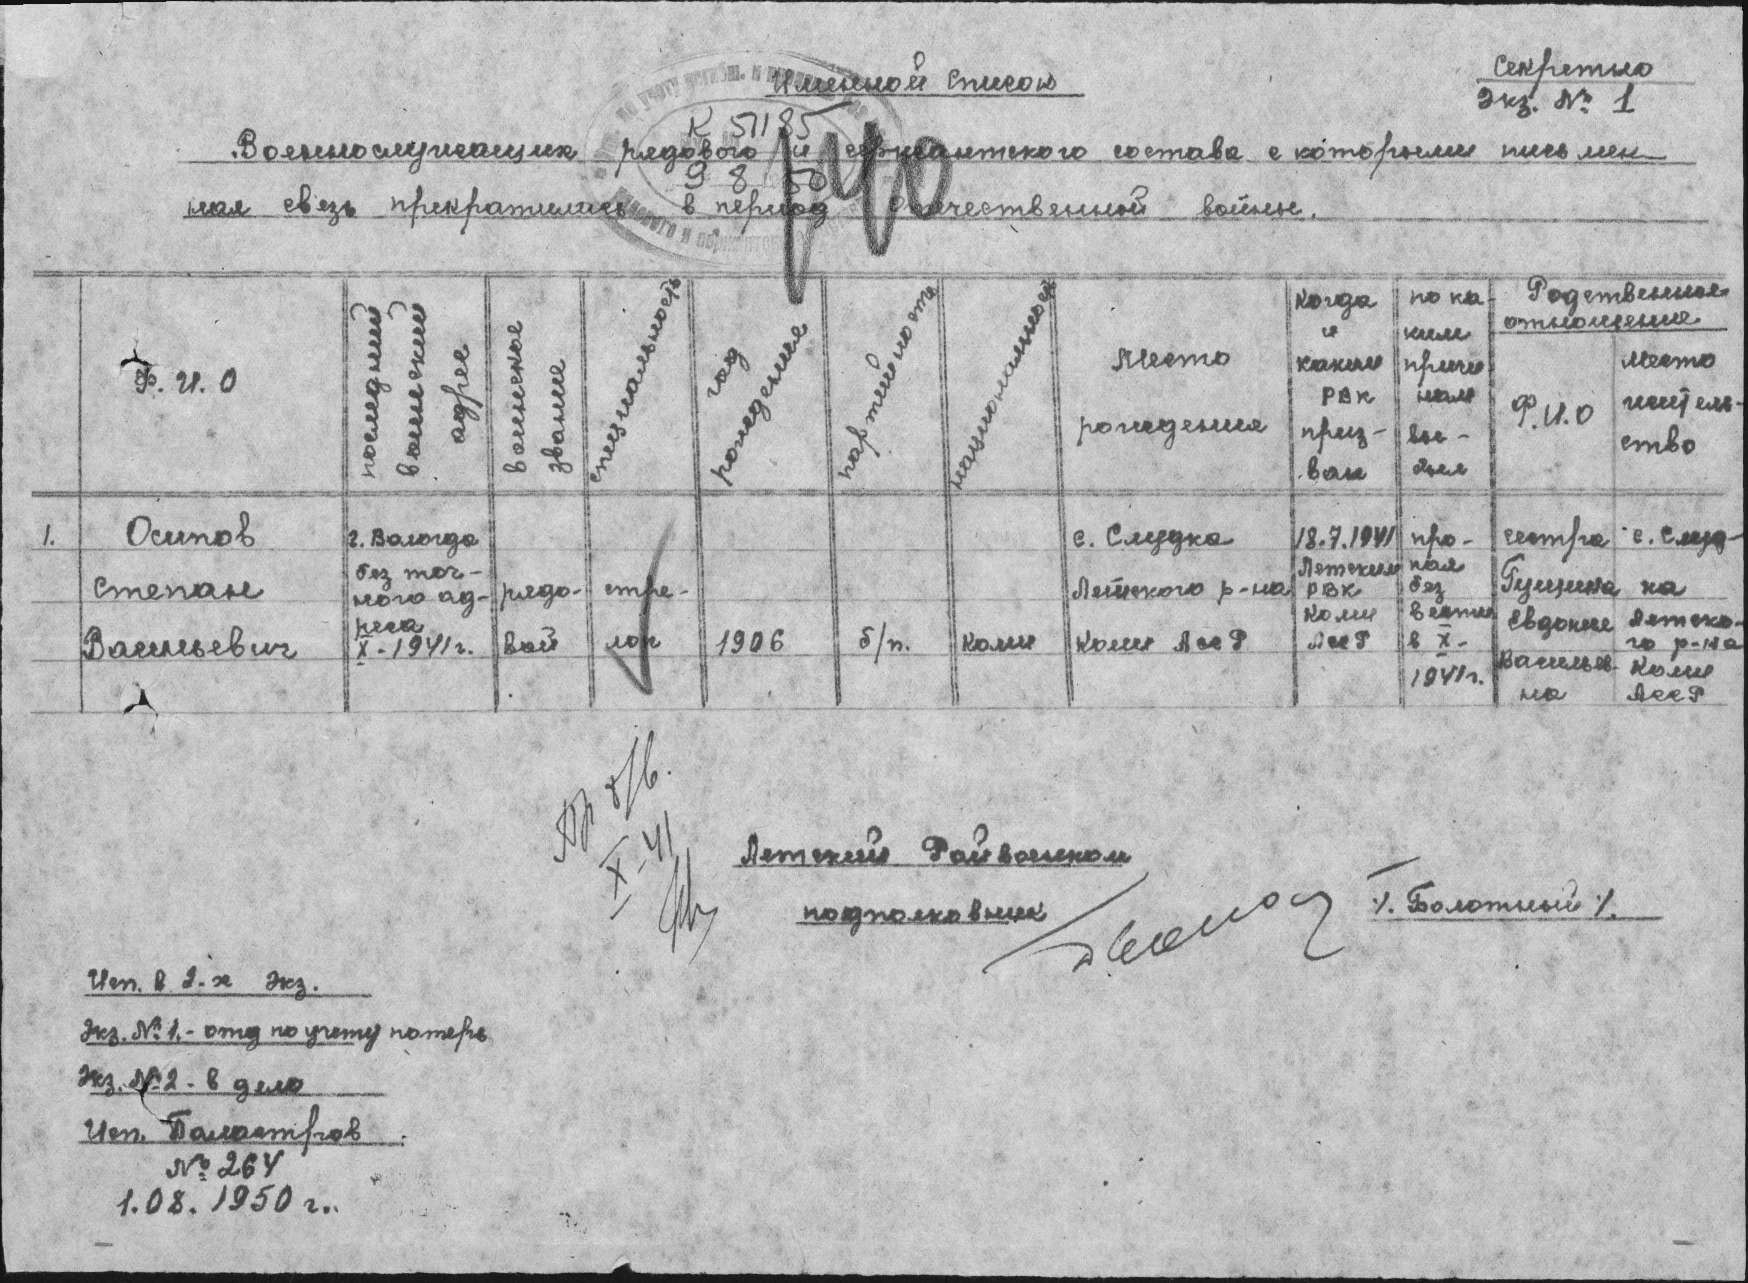 Секретно
Экз. № 1
Именной список
К 51185
Военнослужащих рядового и сержантского состава с которыми письмен
ная связь прекратилась в период Отечественной войны.
9 8 50
140
Ф. И. О
последний
воинский
адрес
воинское
звание
специальность
год
рождения
партийность
национальность
Место
рождения
Когда
и
каким
РВК
приз-
ван
по ка-
ким
причи
нам
вы-
был
Родственные
отношения
Ф.И.О
место
житель-
ство
1.
Осипов
Степан
Васильевич
г. Вологда
без точ-
ного ад-
реса
X-1941г.
рядо-
вой
стре-
лок
1906
б/п.
коми
с. Слудка
Летского р-на
Коми АССР
18.7.1941
Летским
РВК
Коми
АССР
про-
пал
без
вести
в X-
1941г.
сестра
Гущина
Евдокия
Васильев-
на
с. Слуд-
ка
Летско-
го р-на
Коми
АССР
пр б/в.
X-41
Летский Райвоенком
подполковник
/. Болотный /.
Исп. в 2-х экз.
Экз. № 1.- отд по учету потерь
Экз. № 2 - в дело
Исп. Баластров
№ 264
1.08.1950 г..